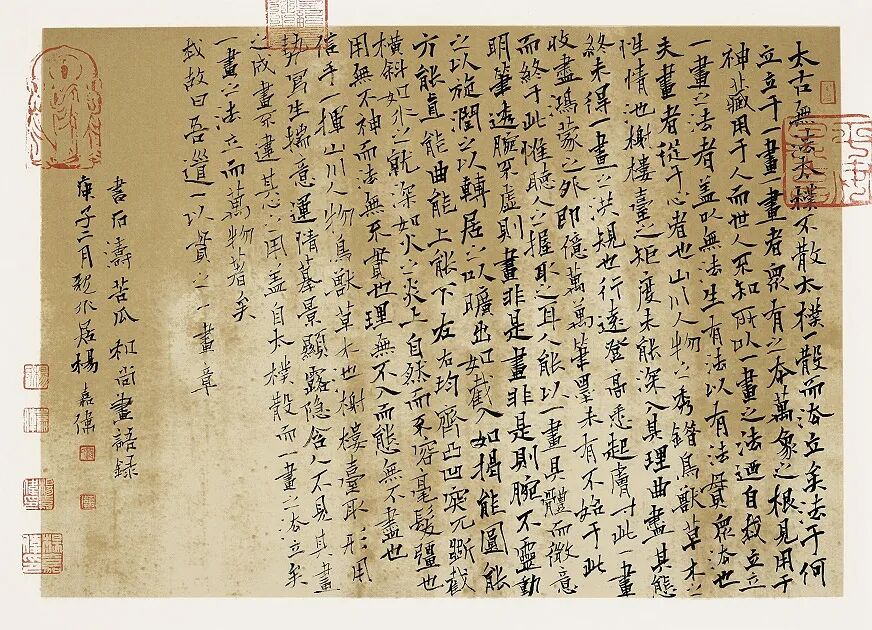 太古無法太樸不散太樸一散而法立矣法于何
立立于一畫一畫者眾有之本萬象之根見用于
神藏用于人而世人不知所以一畫之法迺自我立立
一畫之法者蓋以無法生有法以有法貫眾法也
夫畫者從于心者也山川人物之秀錯鳥獸草木之
性情池榭樓臺之矩度未能深入其理曲盡其態
終未得一畫之洪規也行遠登高悉起膚寸此一畫
收盡鴻蒙之外即億萬萬筆墨未有不始于此
而終于此惟聽人之握取之耳人能以一畫具體而微意
明筆透腕不虛則畫非是畫非是則腕不靈動
之以旋潤之以轉居之以曠出如截入如揭能圓能
方能直能曲能上能下左右均齊凸凹突兀斷截
橫斜如水之就深如火之炎上自然而不容毫髮彊也
用無不神而法無不貫也理無不入而態無不盡也
信手一揮山川人物鳥獸草木池榭樓臺取形用
勢寫生揣意運情摹景顯露隱含人不見其畫
之成畫不違其心之用蓋自太樸散而一畫之法立矣
一畫之法立而萬物著矣
我故曰吾道一以貫之一畫章
書石濤苦瓜和尚畫語錄
庚子二月居楊嘉